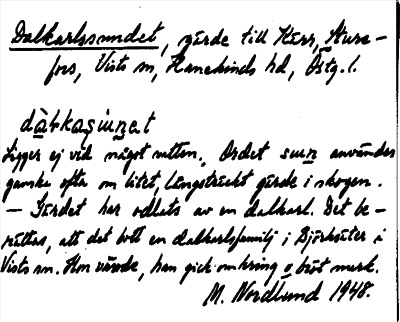 Dalkarlssundet, gärde till Kärr, Sturefors, Vists sn, Hanekinds hd, Östg. l.
dàlkaṣuṇet
Ligger ej vid något vatten. Ordet sun användes
ganska ofta om litet, långsträckt gärde i skogen.
— Gärdet har odlats av en dalkarl. Det be-
rättas, att det bott en dalkarlsfamilj i Björksäter i
Vists sn. Hon vävde, han gick omkring o bröt mark.
M. Nordlund 1948.